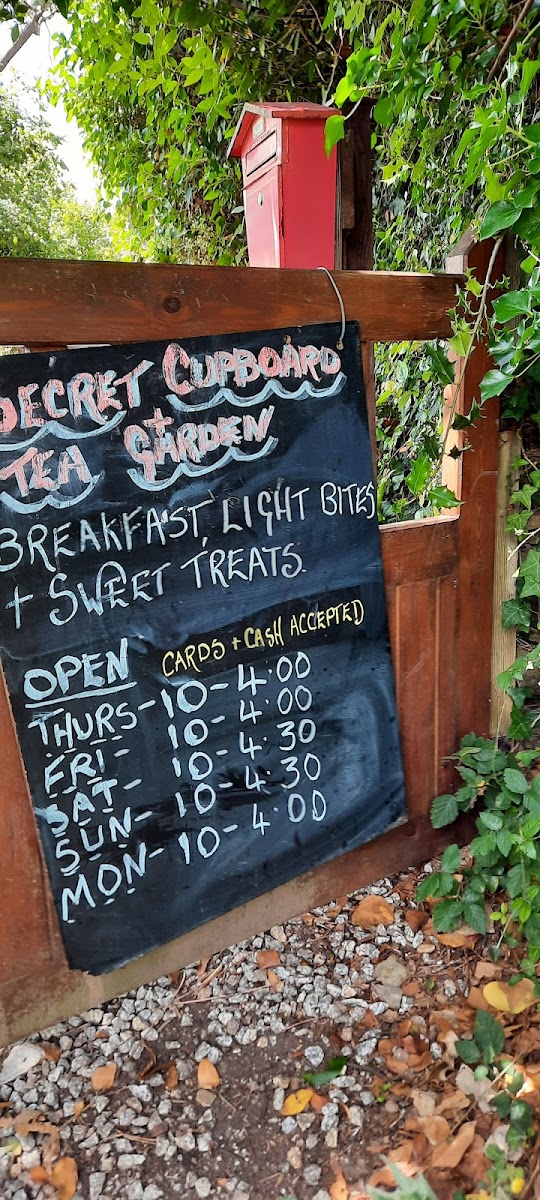 SECRET CUPBOARD
TEA + GARDEN
BREAKFAST, LIGHT BITES
+ SWEET TREATS
OPEN CARDS + CASH ACCEPTED
THURS - 10 - 4.00
FRI - 10 - 4.00
SAT - 10 - 4.30
SUN - 10 - 4.30
MON - 10 - 4.00